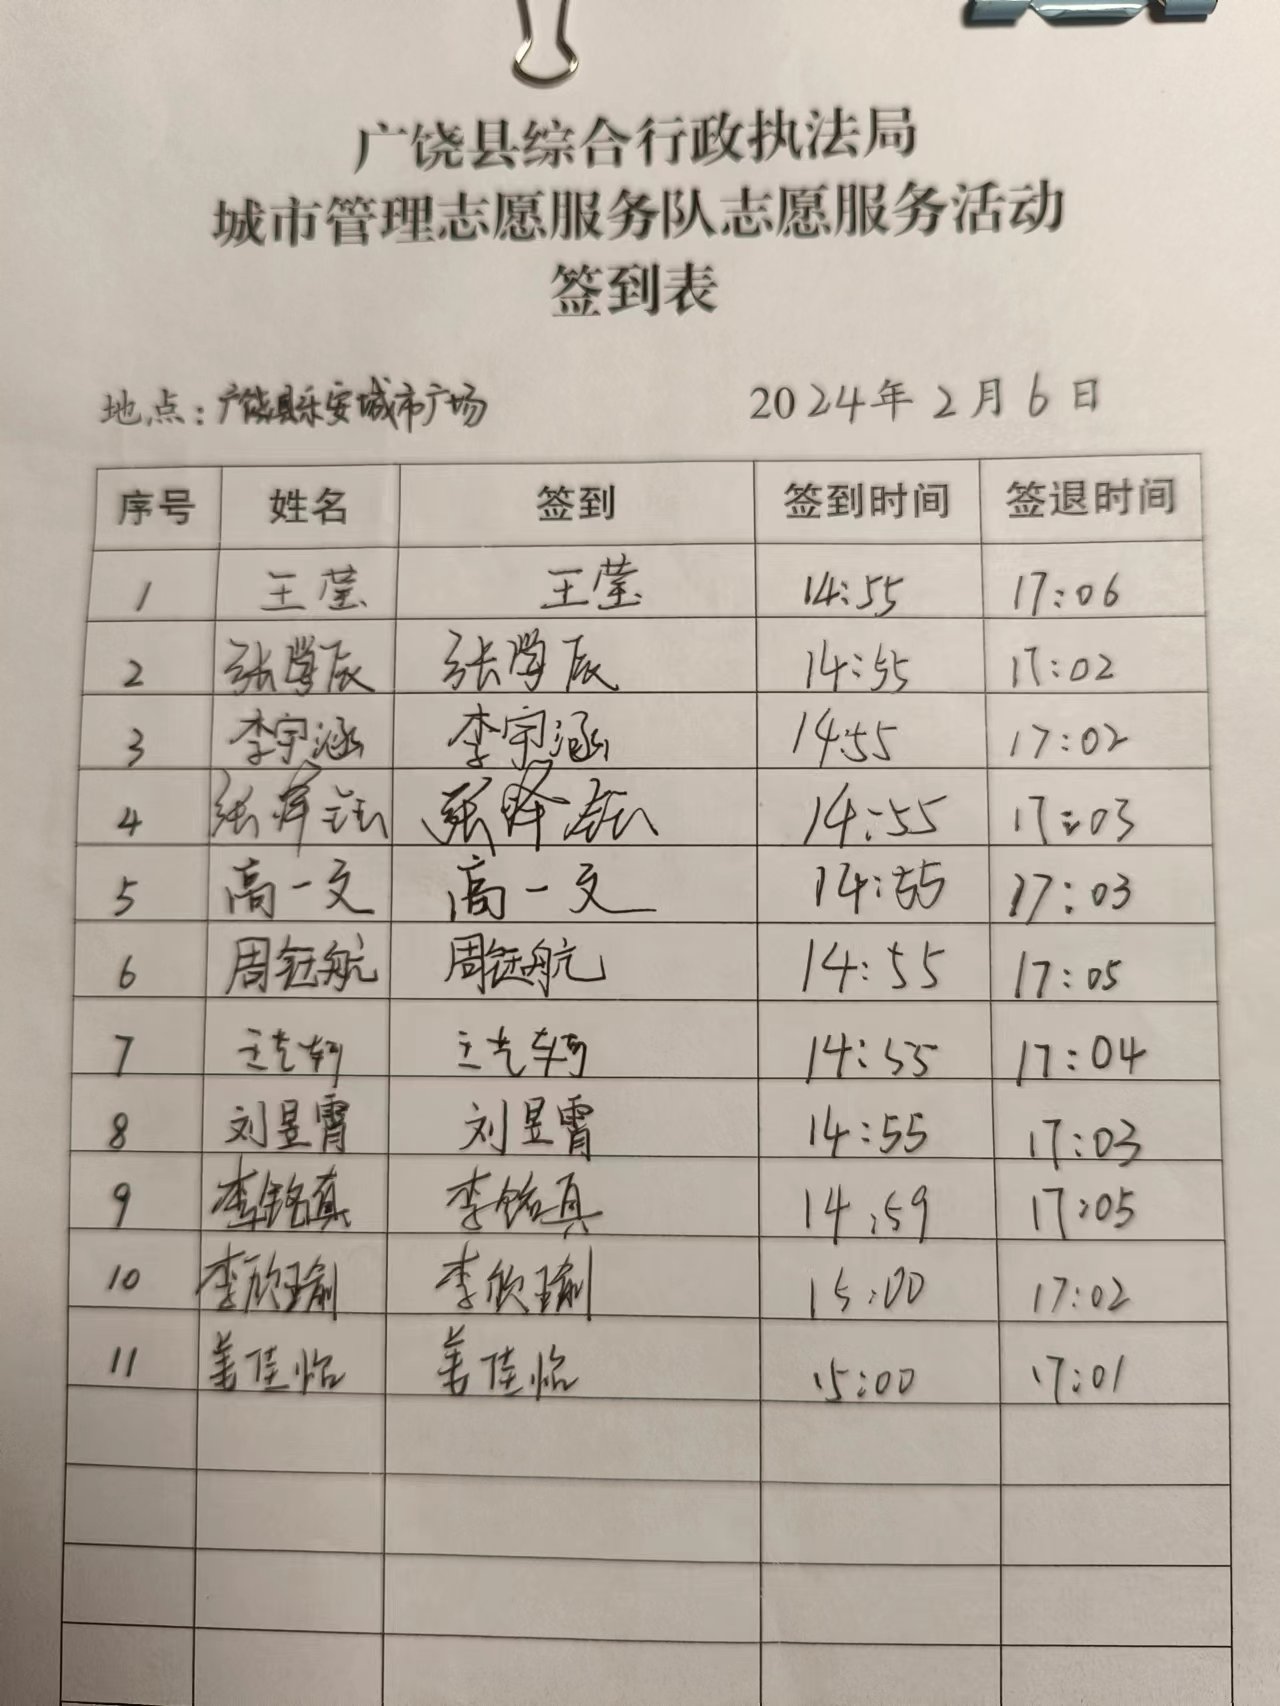 广饶县综合行政执法局
城市管理志愿服务队志愿服务活动
签到表
地点：广饶县乐安城市广场 2024年2月6日
序号 姓名 签到 签到时间 签退时间
1 王莹 王莹 14:55 17:06
2 张学辰 张学辰 14:55 17:02
3 李宇涵 李宇涵 14:55 17:02
4 张泽钰 张泽钰 14:55 17:03
5 高一文 高一文 14:55 17:03
6 周钰航 周钰航 14:55 17:05
7 14:55 17:04
8 刘昱霄 刘昱霄 14:55 17:03
9 李铭真 李铭真 14:59 17:05
10 李欣瑜 李欣瑜 15:00 17:02
11 姜佳怡 姜佳怡 15:00 17:01